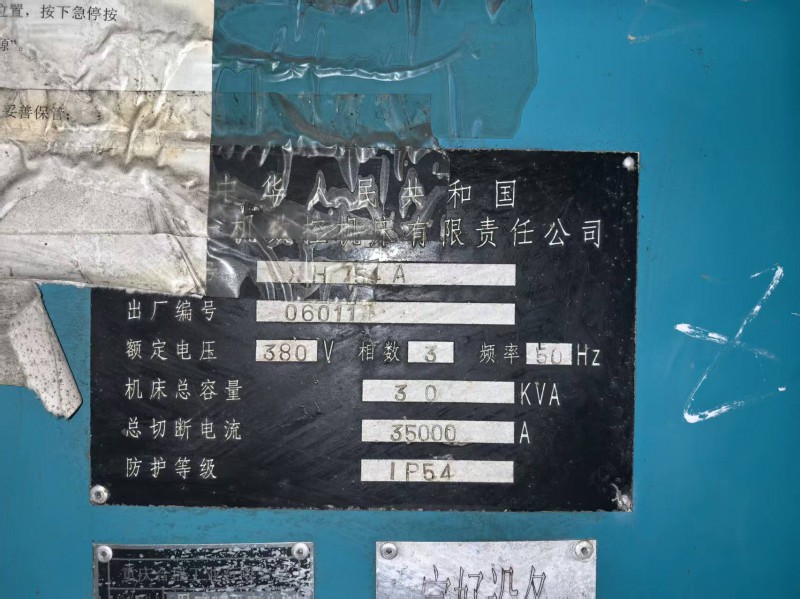 位置，按下急停按
源”。
妥善保管；
中华人民共和国
机数控机床有限责任公司
XH 754 A
出厂编号 06011
额定电压 380 V 相数 3 频率 50 Hz
机床总容量 30 KVA
总切断电流 35000 A
防护等级 IP54
完好设备